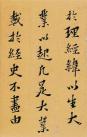 於理經緯以生大
業以起凡是大業
載於經史不盡由